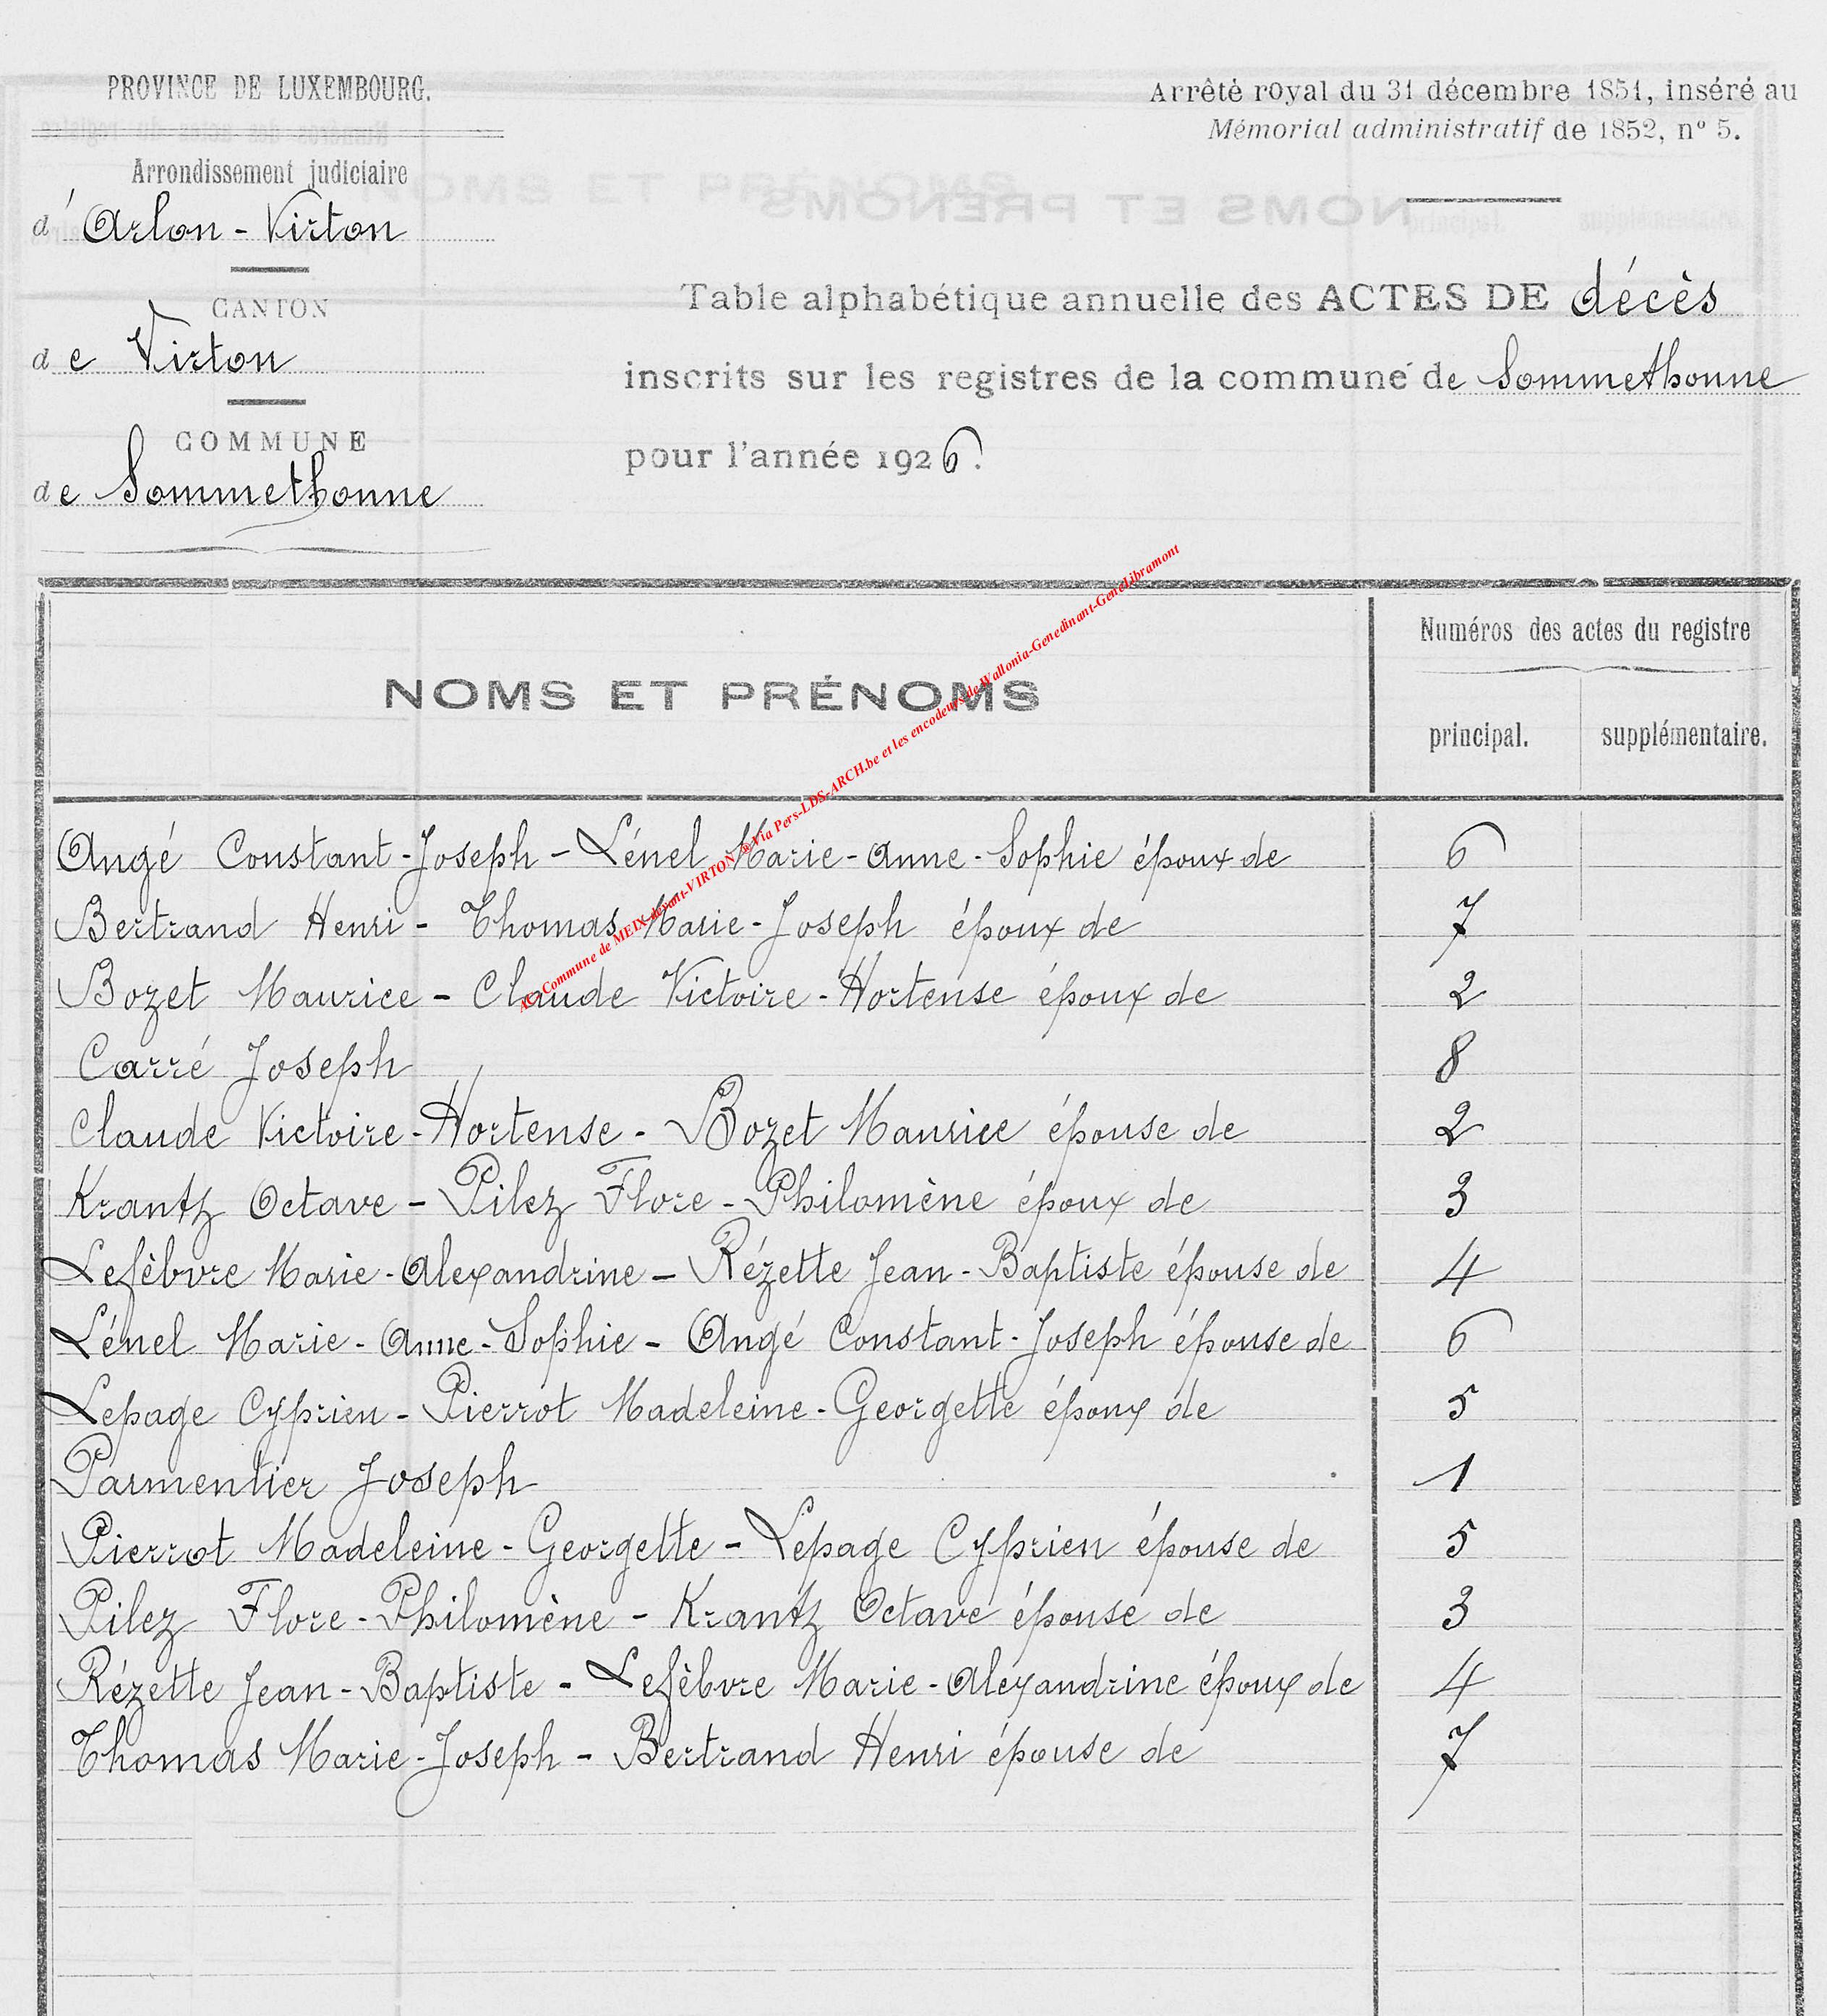 PROVINCE DE LUXEMBOURG.
Arrondissement judiciaire
d' Arlon - Virton
CANTON
de Virton
COMMUNE
de Sommethonne
Arrêté royal du 31 décembre 1851, inséré au
Mémorial administratif de 1852, nº 5.
Table alphabétique annuelle des ACTES DE décès
inscrits sur les registres de la commune de Sommethonne
pour l'année 1926.
NOMS ET PRÉNOMS
Numéros des actes du registre
principal. supplémentaire.
Angé Constant-Joseph - Lénel Marie-Anne-Sophie époux de 6
Bertrand Henri - Thomas Marie-Joseph époux de 7
Bozet Maurice - Claude Victoire-Hortense époux de 2
Carré Joseph 8
Claude Victoire-Hortense - Bozet Maurice épouse de 2
Krantz Octave - Pilez Flore-Philomène époux de 3
Lefèbvre Marie-Alexandrine - Rézette Jean-Baptiste épouse de 4
Lénel Marie-Anne-Sophie - Angé Constant-Joseph épouse de 6
Lepage Cyprien - Pierrot Madeleine-Georgette époux de 5
Parmentier Joseph 1
Pierrot Madeleine-Georgette - Lepage Cyprien épouse de 5
Pilez Flore-Philomène - Krantz Octave épouse de 3
Rézette Jean-Baptiste - Lefèbvre Marie-Alexandrine époux de 4
Thomas Marie-Joseph - Bertrand Henri épouse de 7
Commune de MEIX-devant-VIRTON Via Pers-LDS-ARCH.be et les encodeurs de Wallonia-Genedinant-GeneLibramont